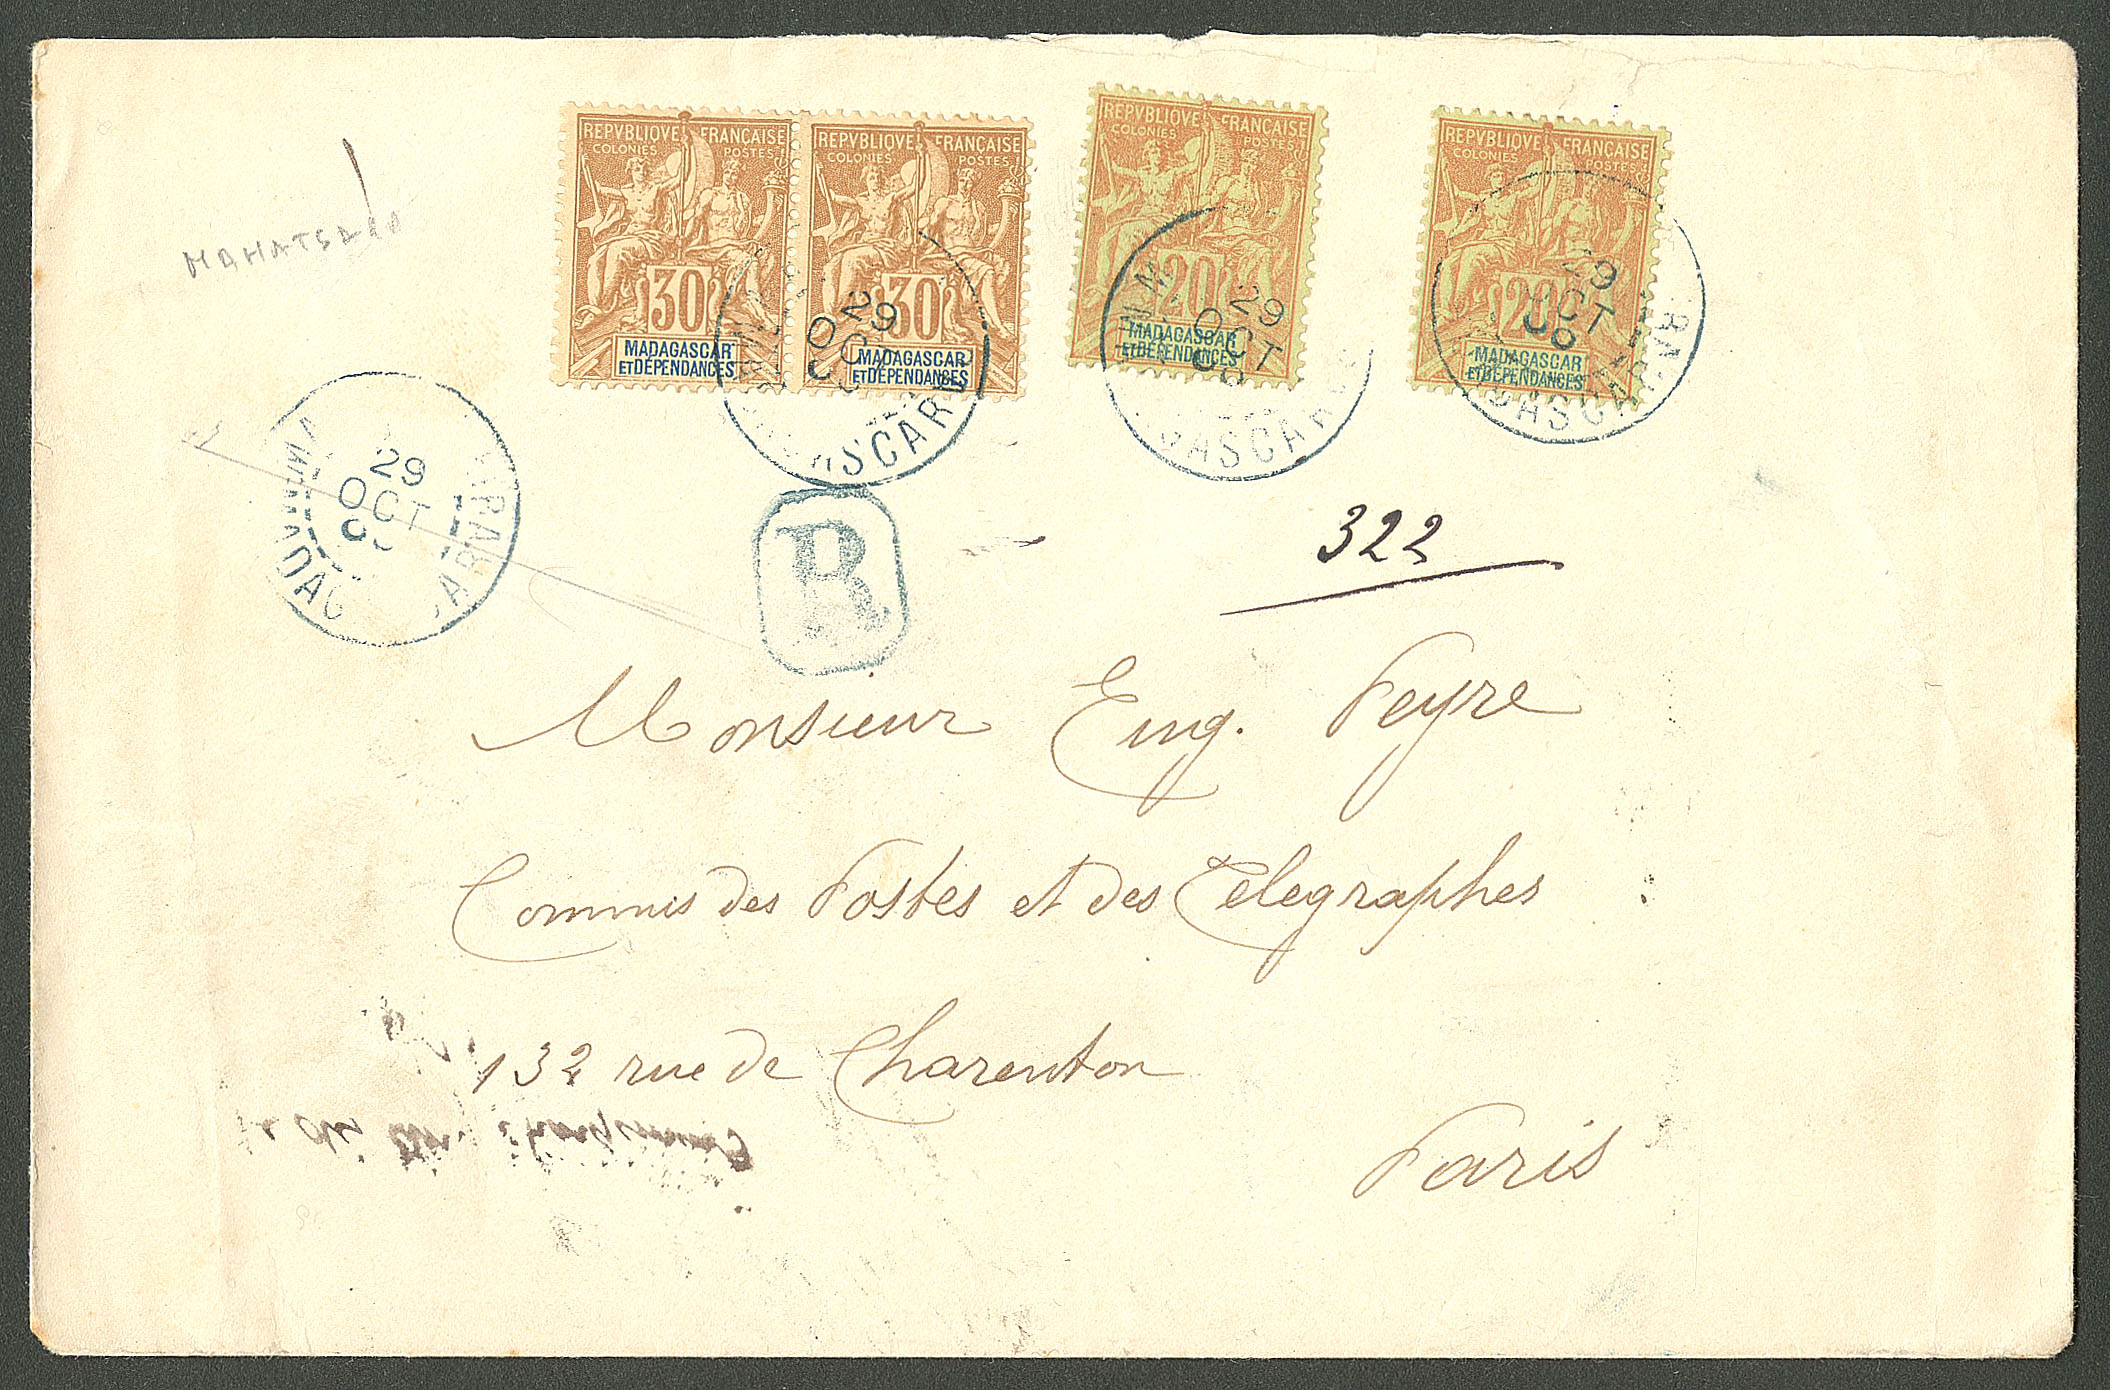 REPVBLIQVE FRANÇAISE
COLONIES POSTES
30
MADAGASCAR
ET DÉPENDANCES
REPVBLIQVE FRANÇAISE
COLONIES POSTES
30
MADAGASCAR
ET DÉPENDANCES
REPVBLIQVE FRANÇAISE
COLONIES POSTES
20
MADAGASCAR
ET DÉPENDANCES
REPVBLIQVE FRANÇAISE
COLONIES POSTES
20
MADAGASCAR
ET DÉPENDANCES
29
OCT
29
OCT
29
OCT
29
OCT
R
322
Monsieur Eug. Peyre
Commis des Postes et des Telegraphes
132 rue de Charenton
Paris